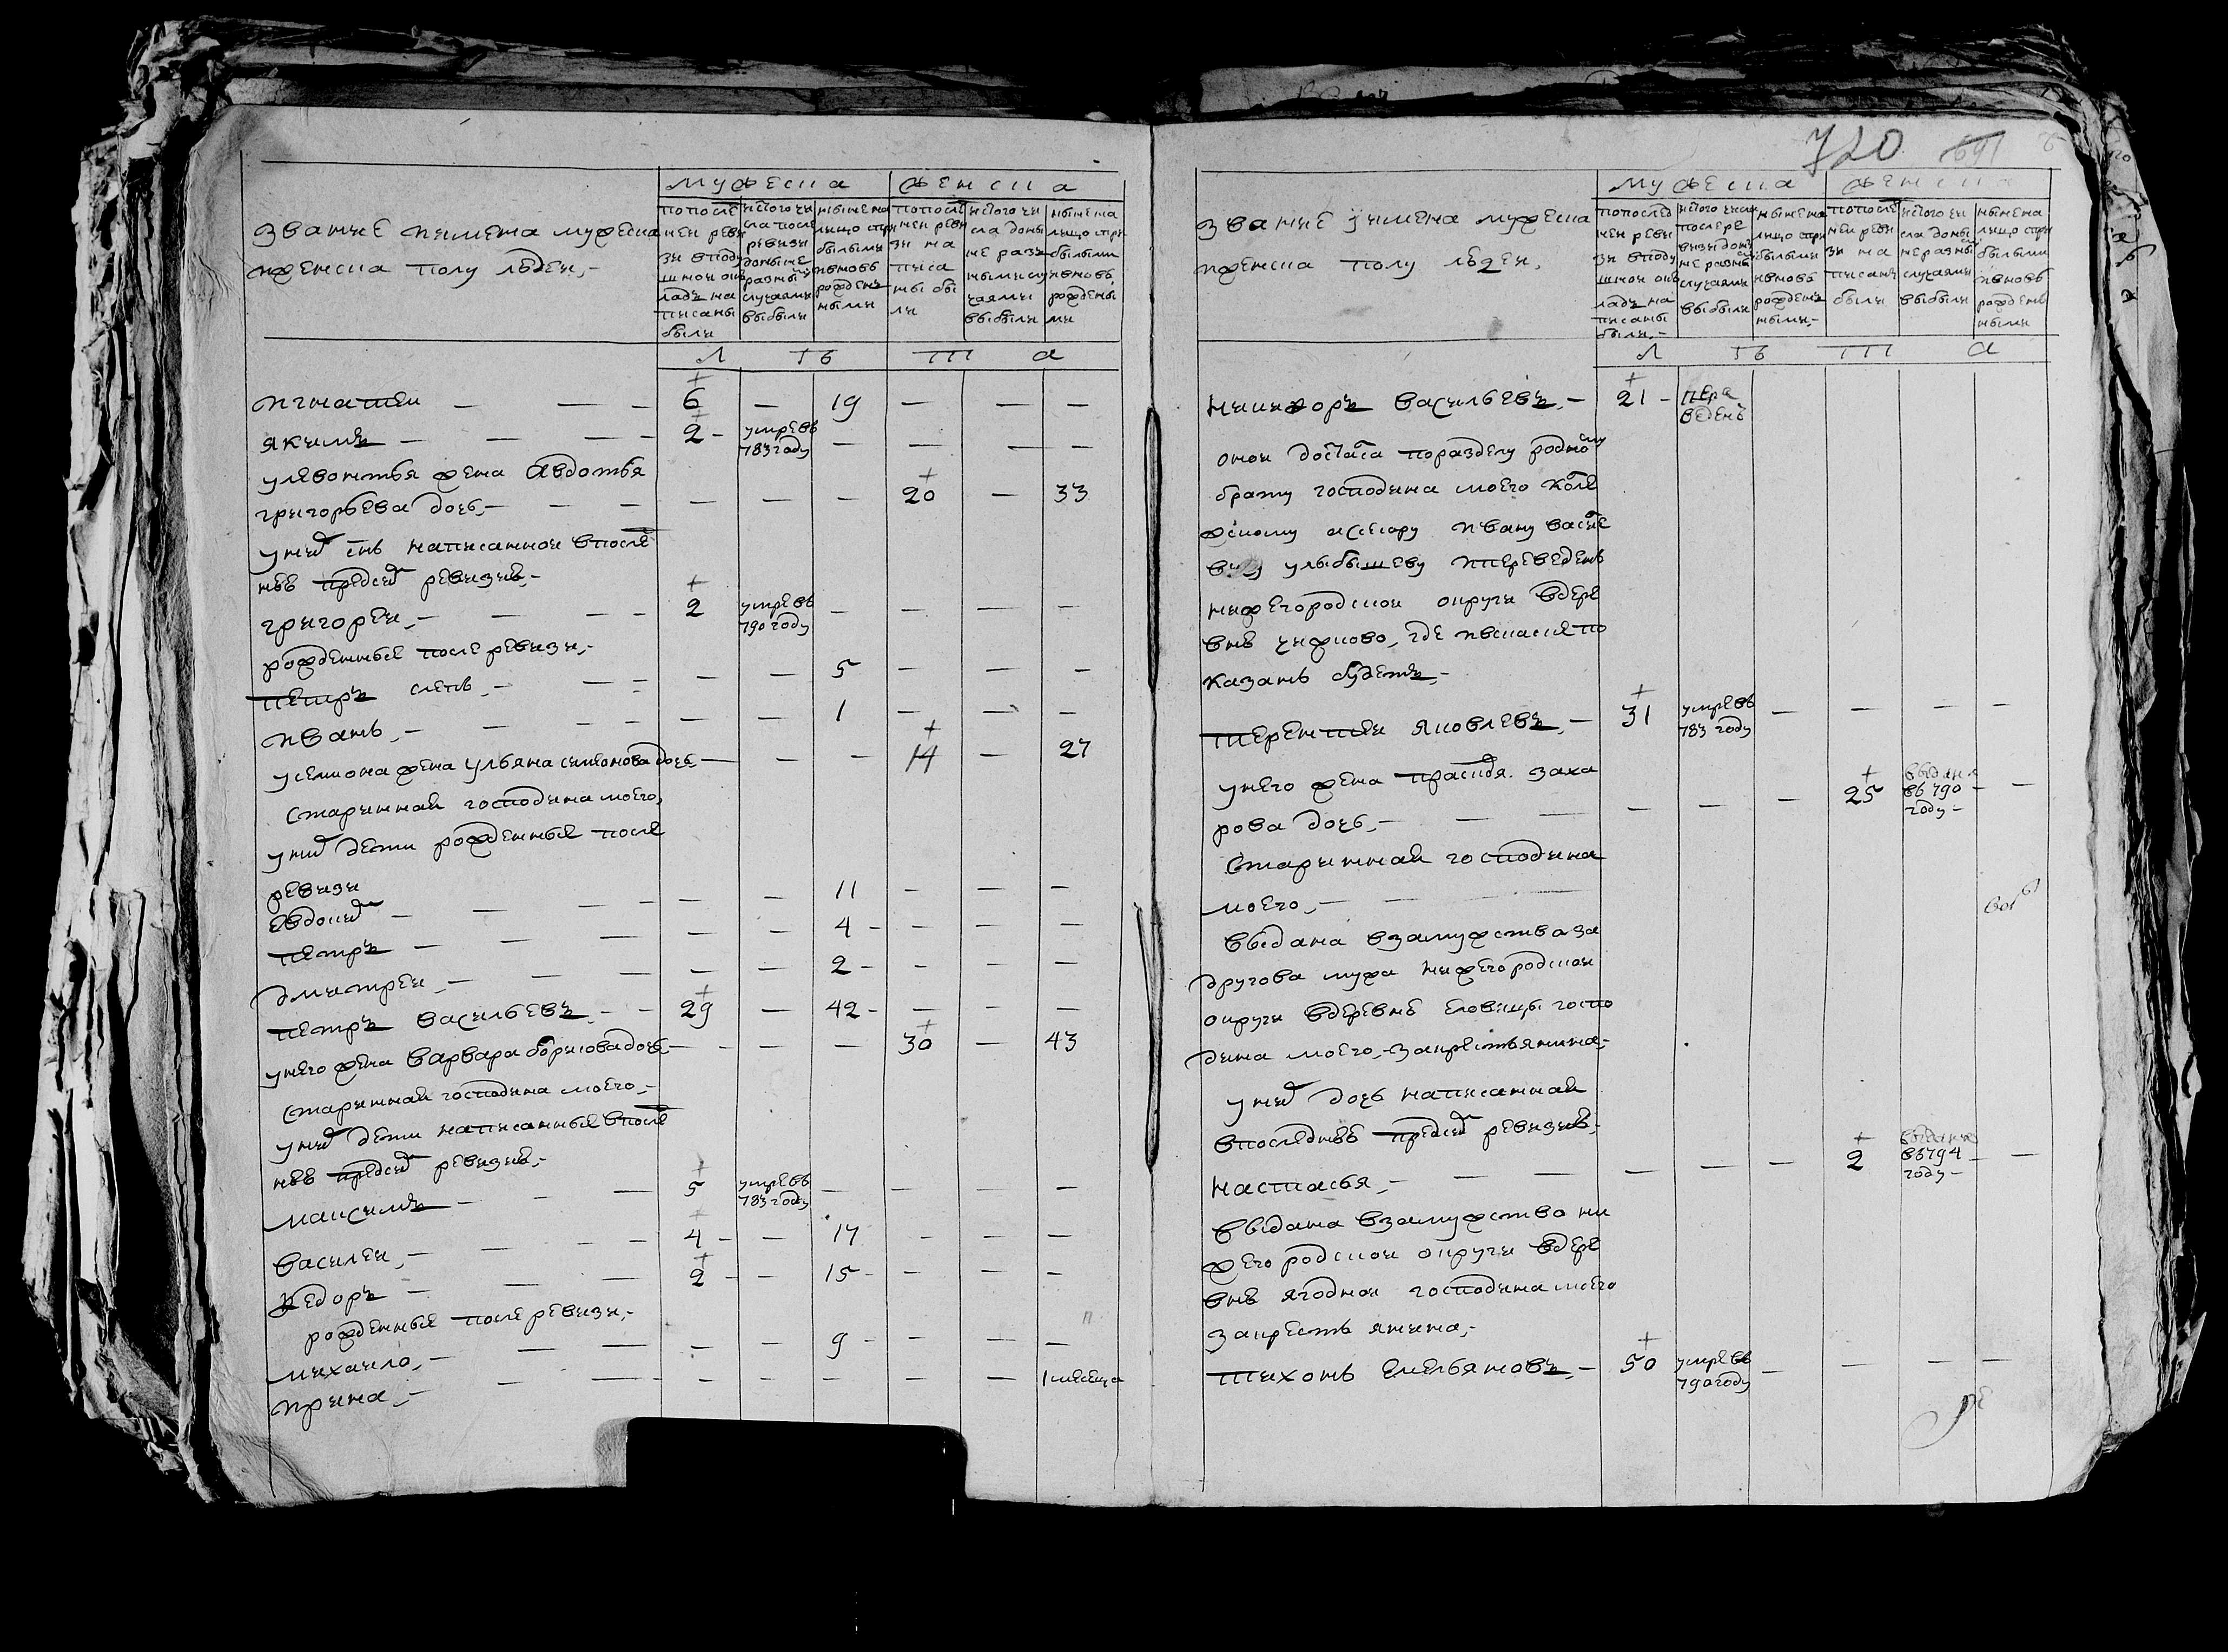 мужеска женска
звание и имена мужеска
и женска полу людей,-
по после
ней реви
зи в поду
шной ок
ладъ на
писаны
были
ис того чи
сла после
ревизи
до ныне
разными
случаями
выбыли
ныне на
лицо с при
былыми
и вновь
рожден
ными
по после
ней реви
зи на
писа
ны бы
ли
ис того чи
сла до ны
не разн
ными слу
чаями
выбыли
ныне на
лицо с при
былыми
и вновь
рожденны
ми
л ѣ т а
игнатеи — — — 6 — 19 — — —
якимъ — — — 2 - умре въ 783 году — — — —
у левонтья жена Авдотья
григорьева дочь,- — — — — — 20 — 33
у них снъ написанной в после
нѣѣ пред сим ревизиѣ,-
григореи,- — — — 2 умре въ 790 году — — — —
рожденные после ревизи,-
петръ слепъ,- — — — — 5 — — —
иванъ,- — — — — — 1 — — —
у семиона жена ульяна симионова дочь,- — — - 14 — 27
старинная господина моего,
у них дети рожденные после
ревизи
евдоким — — — — — 11 — — —
петръ — — — — — 4 - — — —
дмитреи,- — — — — 2 - - — —
петръ васильевъ,- - — 29 — 42 - — — —
у него жена варвара борисова дочь,- - — — 30 — 43
старинная господина моего,-
у них дети написанные в после
нѣѣ пред сим ревизиѣ,-
максимъ — - — 5 умре въ 783 году — — — —
василеи,- — - — 4 - — 17 - — —
Ѳедоръ — — — 2 - — 15 - — — —
рожденные после ревизи,-
михаило,- — — — — 9 - — — —
ирина,- — — — - - - — — 1 месеца
720 691
мужеска женска
звание и имена мужеска
и женска полу людей,
по послед
ней реви
зи в поду
шной ок
ладъ на
писаны
были,-
ис того числа
после ре
визи до ны
не разны
случаями
выбыли
ныне на
лицо с при
былыми
и вновь
рожден
ными,-
по после
ней реви
зи на
писан
были
ис того чи
сла до ны
не разны
случаями
выбыли
ныне на
лицо с при
былыми
и вновь
рожден
ными
л ѣ т а
никифоръ васильевъ,- 21 - пере веденъ
оной достался по разделу родному
брату господина моего колле
жскому асессору ивану василье
вичу улыбышеву и переведенъ
нижегородской округи в дере
внѣ чижково, где и в скаске по
казанъ будетъ,-
терентеи яковлевъ,- 31 умре въ 783 году — — — —
у него жена прасковья заха
рова дочь,- — — — — — 25 выдана въ 790 году - —
старинная господина
моего,- —
выдана в замужство за
другова мужа нижегородской
округи в деревнѣ еловицы госпо
дина моего,- за крестьянина,-
у них дочь написанная
в последнѣѣ пред сим ревизиѣ,-
настасья,- — — — — — 2 выдана въ 794 году - —
выдана в замужство ни
жегородской округи в дере
внѣ ягодной господина моего
за крестьянина,-
тихонъ емельяновъ,- 50 умре въ 790 году — — — —